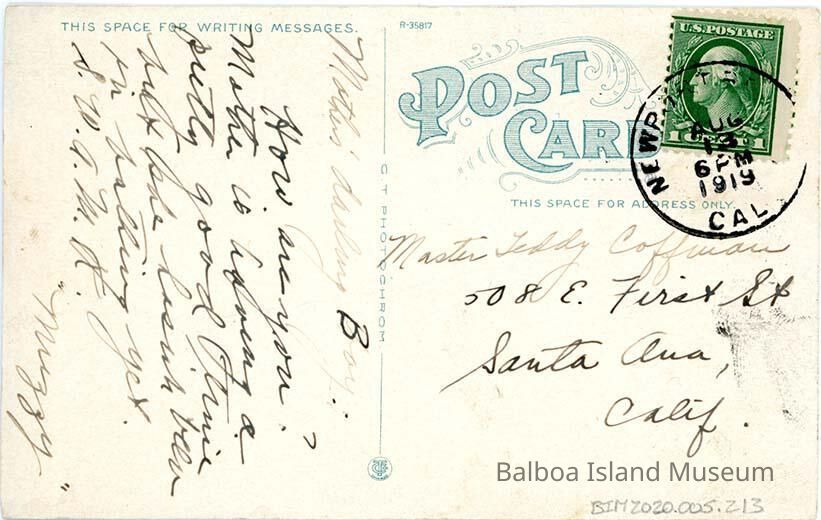 THIS SPACE FOR WRITING MESSAGES.
R-35817
POST
CARD
THIS SPACE FOR ADDRESS ONLY.
U.S. POSTAGE
1
1
NEWPORT
AUG
13
6 PM
1919
CAL
Mother's darling Boy:
How are you?
Mother is having a
pretty good time
but she hasn't been
in bathing yet.
S.W.A.K.
"Muzzy"
C T PHOTOCHROM
Master Teddy Coffman
508 E. First St
Santa Ana,
Calif.
Balboa Island Museum
BIM2020.005.213